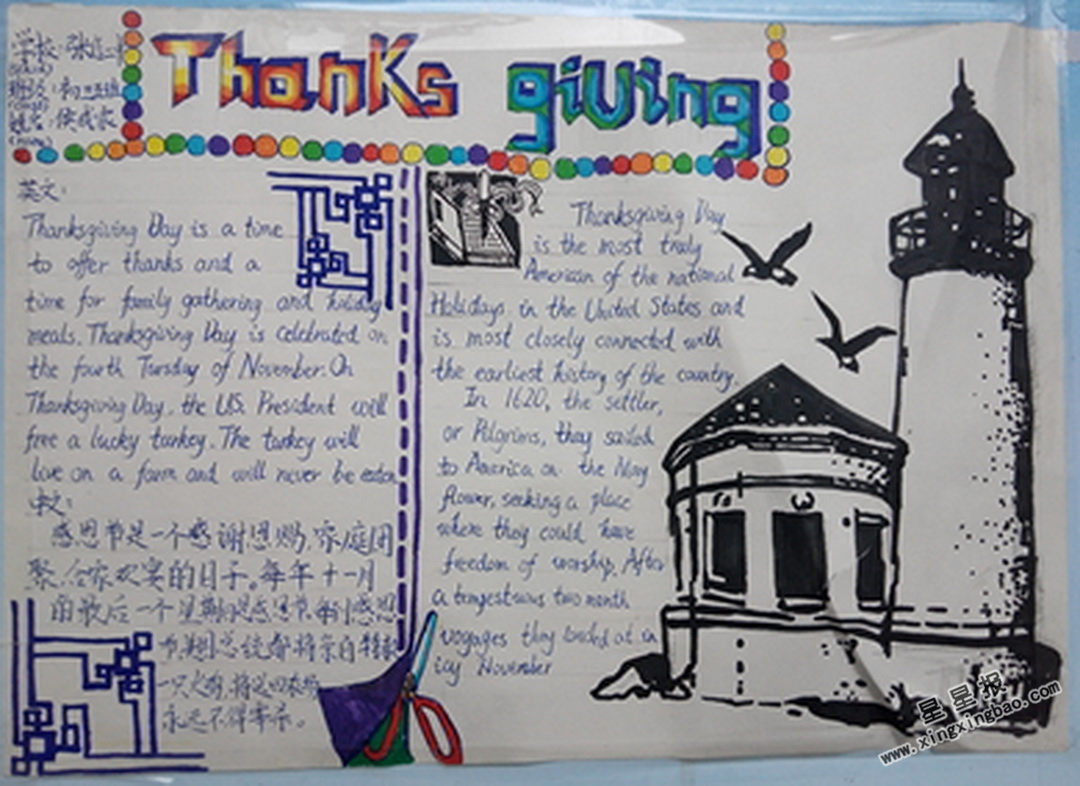 学校:张
班级:初三五班
姓名:侯成家
Thanks giving
英文:
Thanksgiving Day is a time
to offer thanks and a
time for family gathering and holiday
meals. Thanksgiving Day is celebrated on
the fourth Tursday of November. On
Thanksgiving Day, the U.S. President will
free a lucky turkey. The turkey will
live on a farm and will never be eaten
中文:
感恩节是一个感谢恩赐,家庭团
聚,合家欢宴的日子。每年十一月
的最后一个星期四是感恩节,每到感恩
节,美国总统都将亲自释放
一只火鸡,将送回农场
永远不得宰杀。
Thanksgiving Day
is the most truly
American of the national
Holidays in the United States and
is most closely connected with
the earliest history of the country.
In 1620, the settler,
or Pilgrims, they sailed
to America on the May
flower, seeking a place
where they could have
freedom of worship. After
a tempestuous two month
voyages they landed at in
icy November
星星报
www.xingxingbao.com